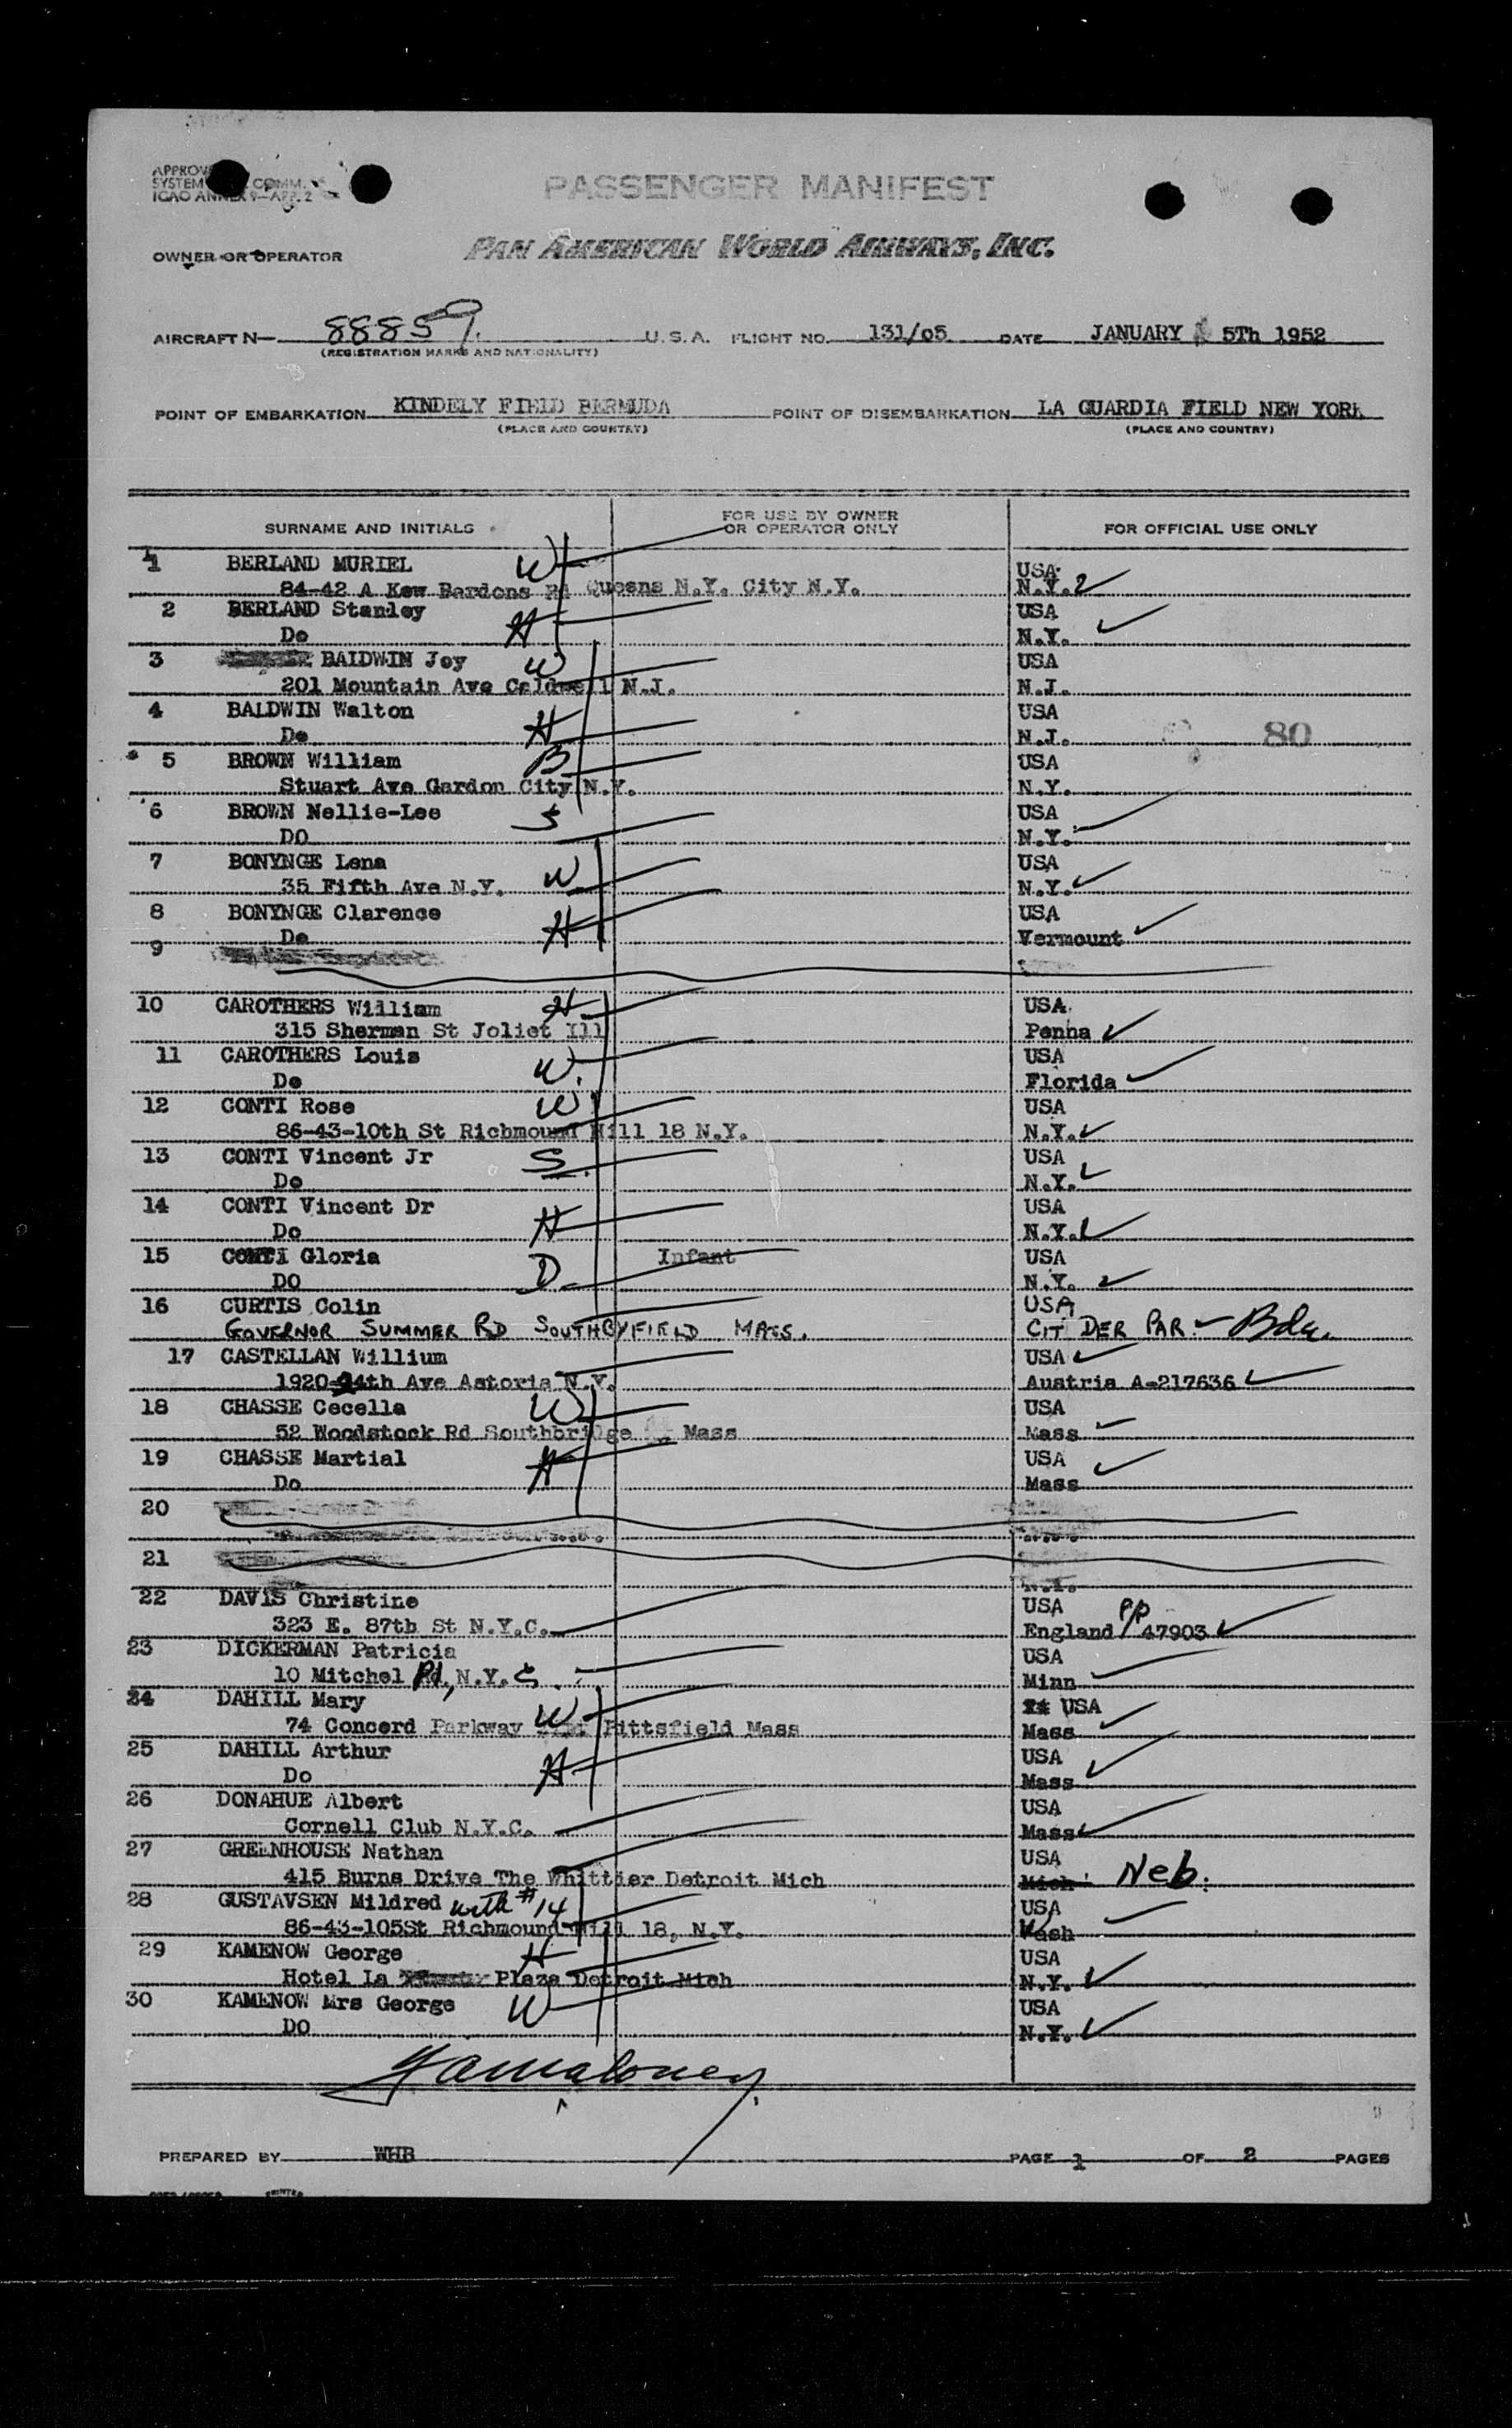 PASSENGER MANIFEST
ICAO ANNEX 9-APP. 2
OWNER OR OPERATOR PAN AMERICAN WORLD AIRWAYS, INC.
AIRCRAFT N— 88859. U.S.A. FLIGHT NO. 131/05 DATE JANUARY 5Th 1952
(REGISTRATION MARKS AND NATIONALITY)
POINT OF EMBARKATION KINDELY FIELD BERMUDA POINT OF DISEMBARKATION LA GUARDIA FIELD NEW YORK
(PLACE AND COUNTRY) (PLACE AND COUNTRY)
SURNAME AND INITIALS FOR USE BY OWNER OR OPERATOR ONLY FOR OFFICIAL USE ONLY
1 BERLAND MURIEL W USA
84-42 A Kew Bardons Rd Queens N.Y. City N.Y. N.Y.
2 BERLAND Stanley H USA
Do N.Y.
3 BALDWIN Joy W USA
201 Mountain Ave Caldwell N.J. N.J.
4 BALDWIN Walton H USA
Do N.J. 80
5 BROWN William B USA
Stuart Ave Gardon City N.Y. N.Y.
6 BROWN Nellie-Lee S USA
DO N.Y.
7 BONYNGE Lena W USA
35 Fifth Ave N.Y. N.Y.
8 BONYNGE Clarence H USA
Do Vermount
9
10 CAROTHERS William H USA
315 Sherman St Joliet Ill Penna
11 CAROTHERS Louis W. USA
Do Florida
12 CONTI Rose W USA
86-43-10th St Richmound Hill 18 N.Y. N.Y.
13 CONTI Vincent Jr S. USA
Do N.Y.
14 CONTI Vincent Dr H USA
Do N.Y.
15 CONTI Gloria D Infant USA
DO N.Y.
16 CURTIS Colin USA
GOVERNOR SUMMER RD SOUTHBYFIELD MASS. CIT DER PAR. Bda.
17 CASTELLAN Willium USA
1920-24th Ave Astoria N.Y. Austria A-217636
18 CHASSE Cecella W USA
52 Woodstock Rd Southbridge Mass Mass
19 CHASSE Martial H USA
Do Mass
20
21
22 DAVIS Christine USA
323 E. 87th St N.Y.C. England PP 47903
23 DICKERMAN Patricia USA
10 Mitchel Pl, N.Y.C. Minn
24 DAHILL Mary W USA
74 Concord Parkway Pittsfield Mass Mass
25 DAHILL Arthur H USA
Do Mass
26 DONAHUE Albert USA
Cornell Club N.Y.C. Mass
27 GREENHOUSE Nathan USA
415 Burns Drive The Whittier Detroit Mich Mich Neb.
28 GUSTAVSEN Mildred with #14 USA
86-43-105St Richmound Hill 18, N.Y. Wash
29 KAMENOW George H USA
Hotel La Plaza Detroit Mich N.Y.
30 KAMENOW Mrs George W USA
DO N.Y.
PREPARED BY WHB PAGE 1 OF 2 PAGES